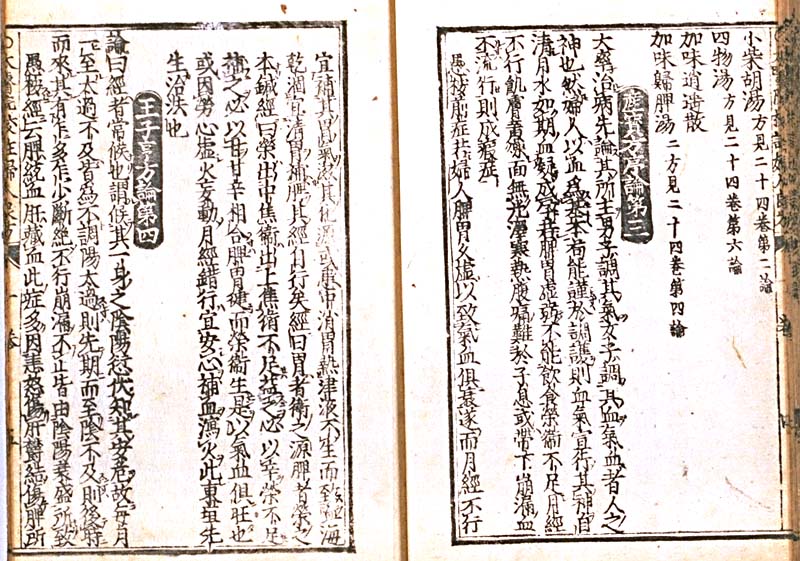 小柴胡湯方見二十四卷第二論
四物湯方見二十四卷第六論
加味逍遙散
加味歸脾湯二方見二十四卷第四論
産寶方序論第三
大率治病先論其所主男子調其氣女子調其血氣血者人之
神也然婦人以血爲基本苟能謹於調護則血氣宣行其神自
清月水如期血凝成孕若脾胃虛弱不能飲食榮衛不足月經
不行飢膚黃燥面無光澤寒熱腹痛難於子息或帶下崩漏血
不流行則成瘕症
愚按前症其婦人脾胃久虛以致氣血俱衰遂而月經不行
宜補其胃氣滋其化源或患中消胃熱津液不生而致血海
乾涸宜清胃補脾其經自行矣經曰胃者衛之源脾者榮之
本鍼經曰榮出中焦衛出上焦衛不足益之必以辛榮不足
補之必以甘甘辛相合脾胃健而榮衛生是以氣血俱旺也
或因勞心虛火妄動月經錯行宜安心補血瀉火此東垣先
生治法也
王子亨方論第四
論曰經者常候也謂候其一身之陰陽愆伏知其安危故每月
一至太過不及皆爲不調陽太過則先期而至陰不及則後時
而來其有乍多乍少斷絶不行崩漏不止皆由陰陽衰盛所致
愚按經云脾統血肝藏血此症多因恚怒傷肝鬱結傷脾所